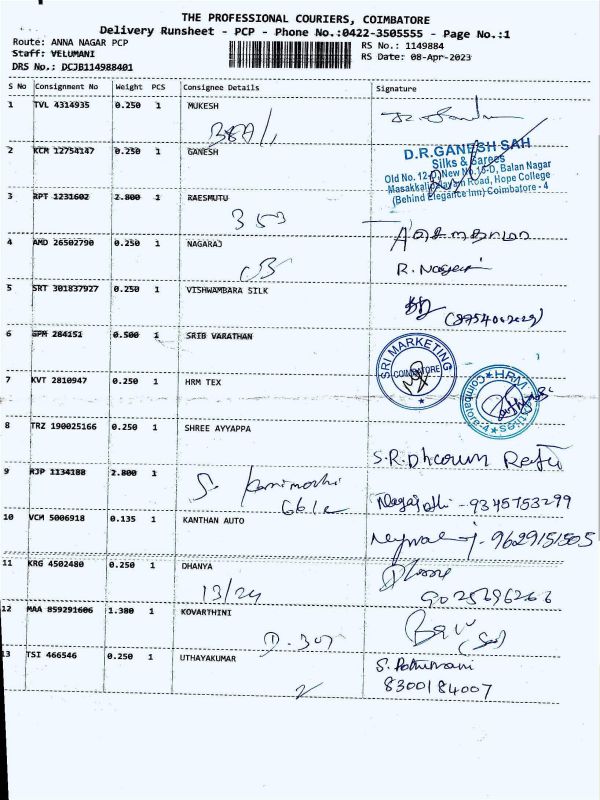 THE PROFESSIONAL COURIERS, COIMBATORE
Delivery Runsheet - PCP - Phone No.:0422-3505555 - Page No.:1
Route: ANNA NAGAR PCP
RS No.: 1149884
Staff: VELUMANI
RS Date: 08-Apr-2023
DRS No.: DCJB114988401
S No Consignment No Weight PCS Consignee Details Signature
1 TVL 4314935 0.250 1 MUKESH
2 KCM 12754147 0.250 1 GANESH
D.R.GANESH SAH
Silks & Sarees
Old No. 12-D, New No.15-D, Balan Nagar
Masakkalipalayam Road, Hope College
(Behind Elegance Inn) Coimbatore - 4
3 RPT 1231602 2.800 1 RAESMUTU
353
4 AMD 26502790 0.250 1 NAGARAJ
R. Nagaraj
5 SRT 301837927 0.250 1 VISHWAMBARA SILK
6 GPM 284151 0.500 1 SRIB VARATHAN
SRI MARKETING
COIMBATORE
7 KVT 2810947 0.250 1 HRM TEX
HRM
Coimbatore-4
8 TRZ 190025166 0.250 1 SHREE AYYAPPA
S.R.Dhoorun
9 RJP 1134188 2.800 1
S.
- 9345753299
10 VCM 5006918 0.135 1 KANTHAN AUTO
- 9629151505
11 KRG 4502480 0.250 1 DHANYA
13/24
9025696266
12 MAA 859291606 1.380 1 KOVARTHINI
D. 307
13 TSI 466546 0.250 1 UTHAYAKUMAR
S.
8300184007
2